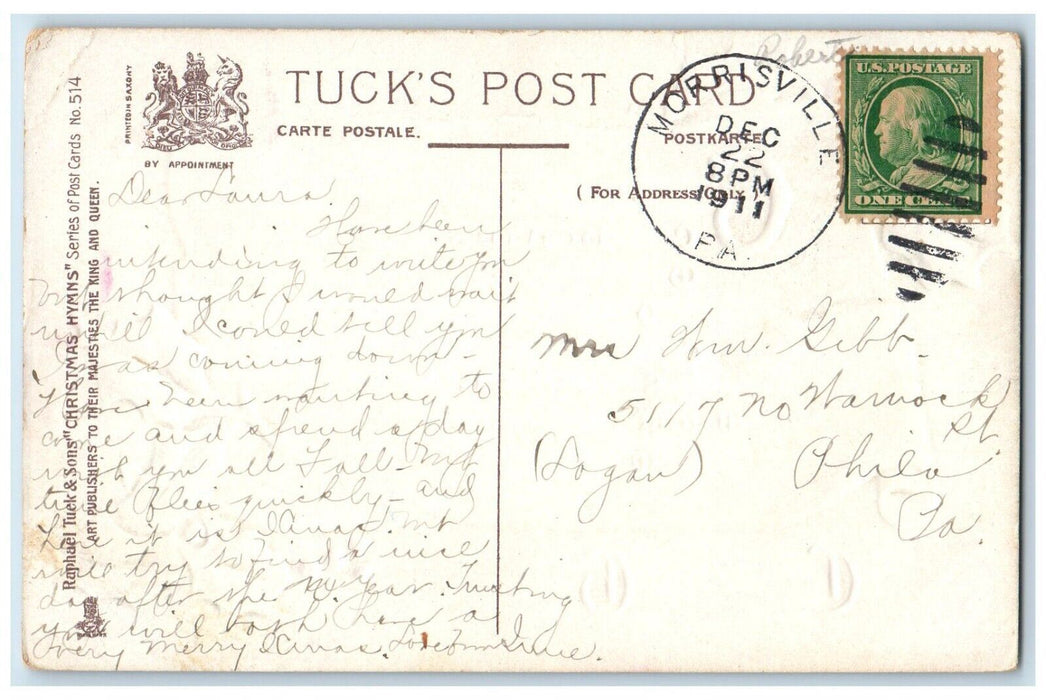 Robert
TUCK'S POST CARD
CARTE POSTALE.
POSTKARTE
(FOR ADDRESS ONLY)
PRINTED IN SAXONY
BY APPOINTMENT
Raphael Tuck & Sons' "CHRISTMAS HYMNS" Series of Post Cards No. 514
ART PUBLISHERS TO THEIR MAJESTIES THE KING AND QUEEN.
MORRISVILLE
DEC
22
8 PM
1911
PA.
U.S. POSTAGE
ONE CENT
Dear Laura.
Have been
intending to write you
but thought I would wait
until I could tell you
I was coming down -
Have been wanting to
come and spend a day
with you all Fall - but
time flies quickly - and
here it is Xmas. but
will try to find a nice
day after the New Year. Trusting
you will both have a
Very Merry Xmas. Love from Irene.
Mrs Wm. Gibb.
5117 No Warnock
St.
(Logan) Phila
Pa.